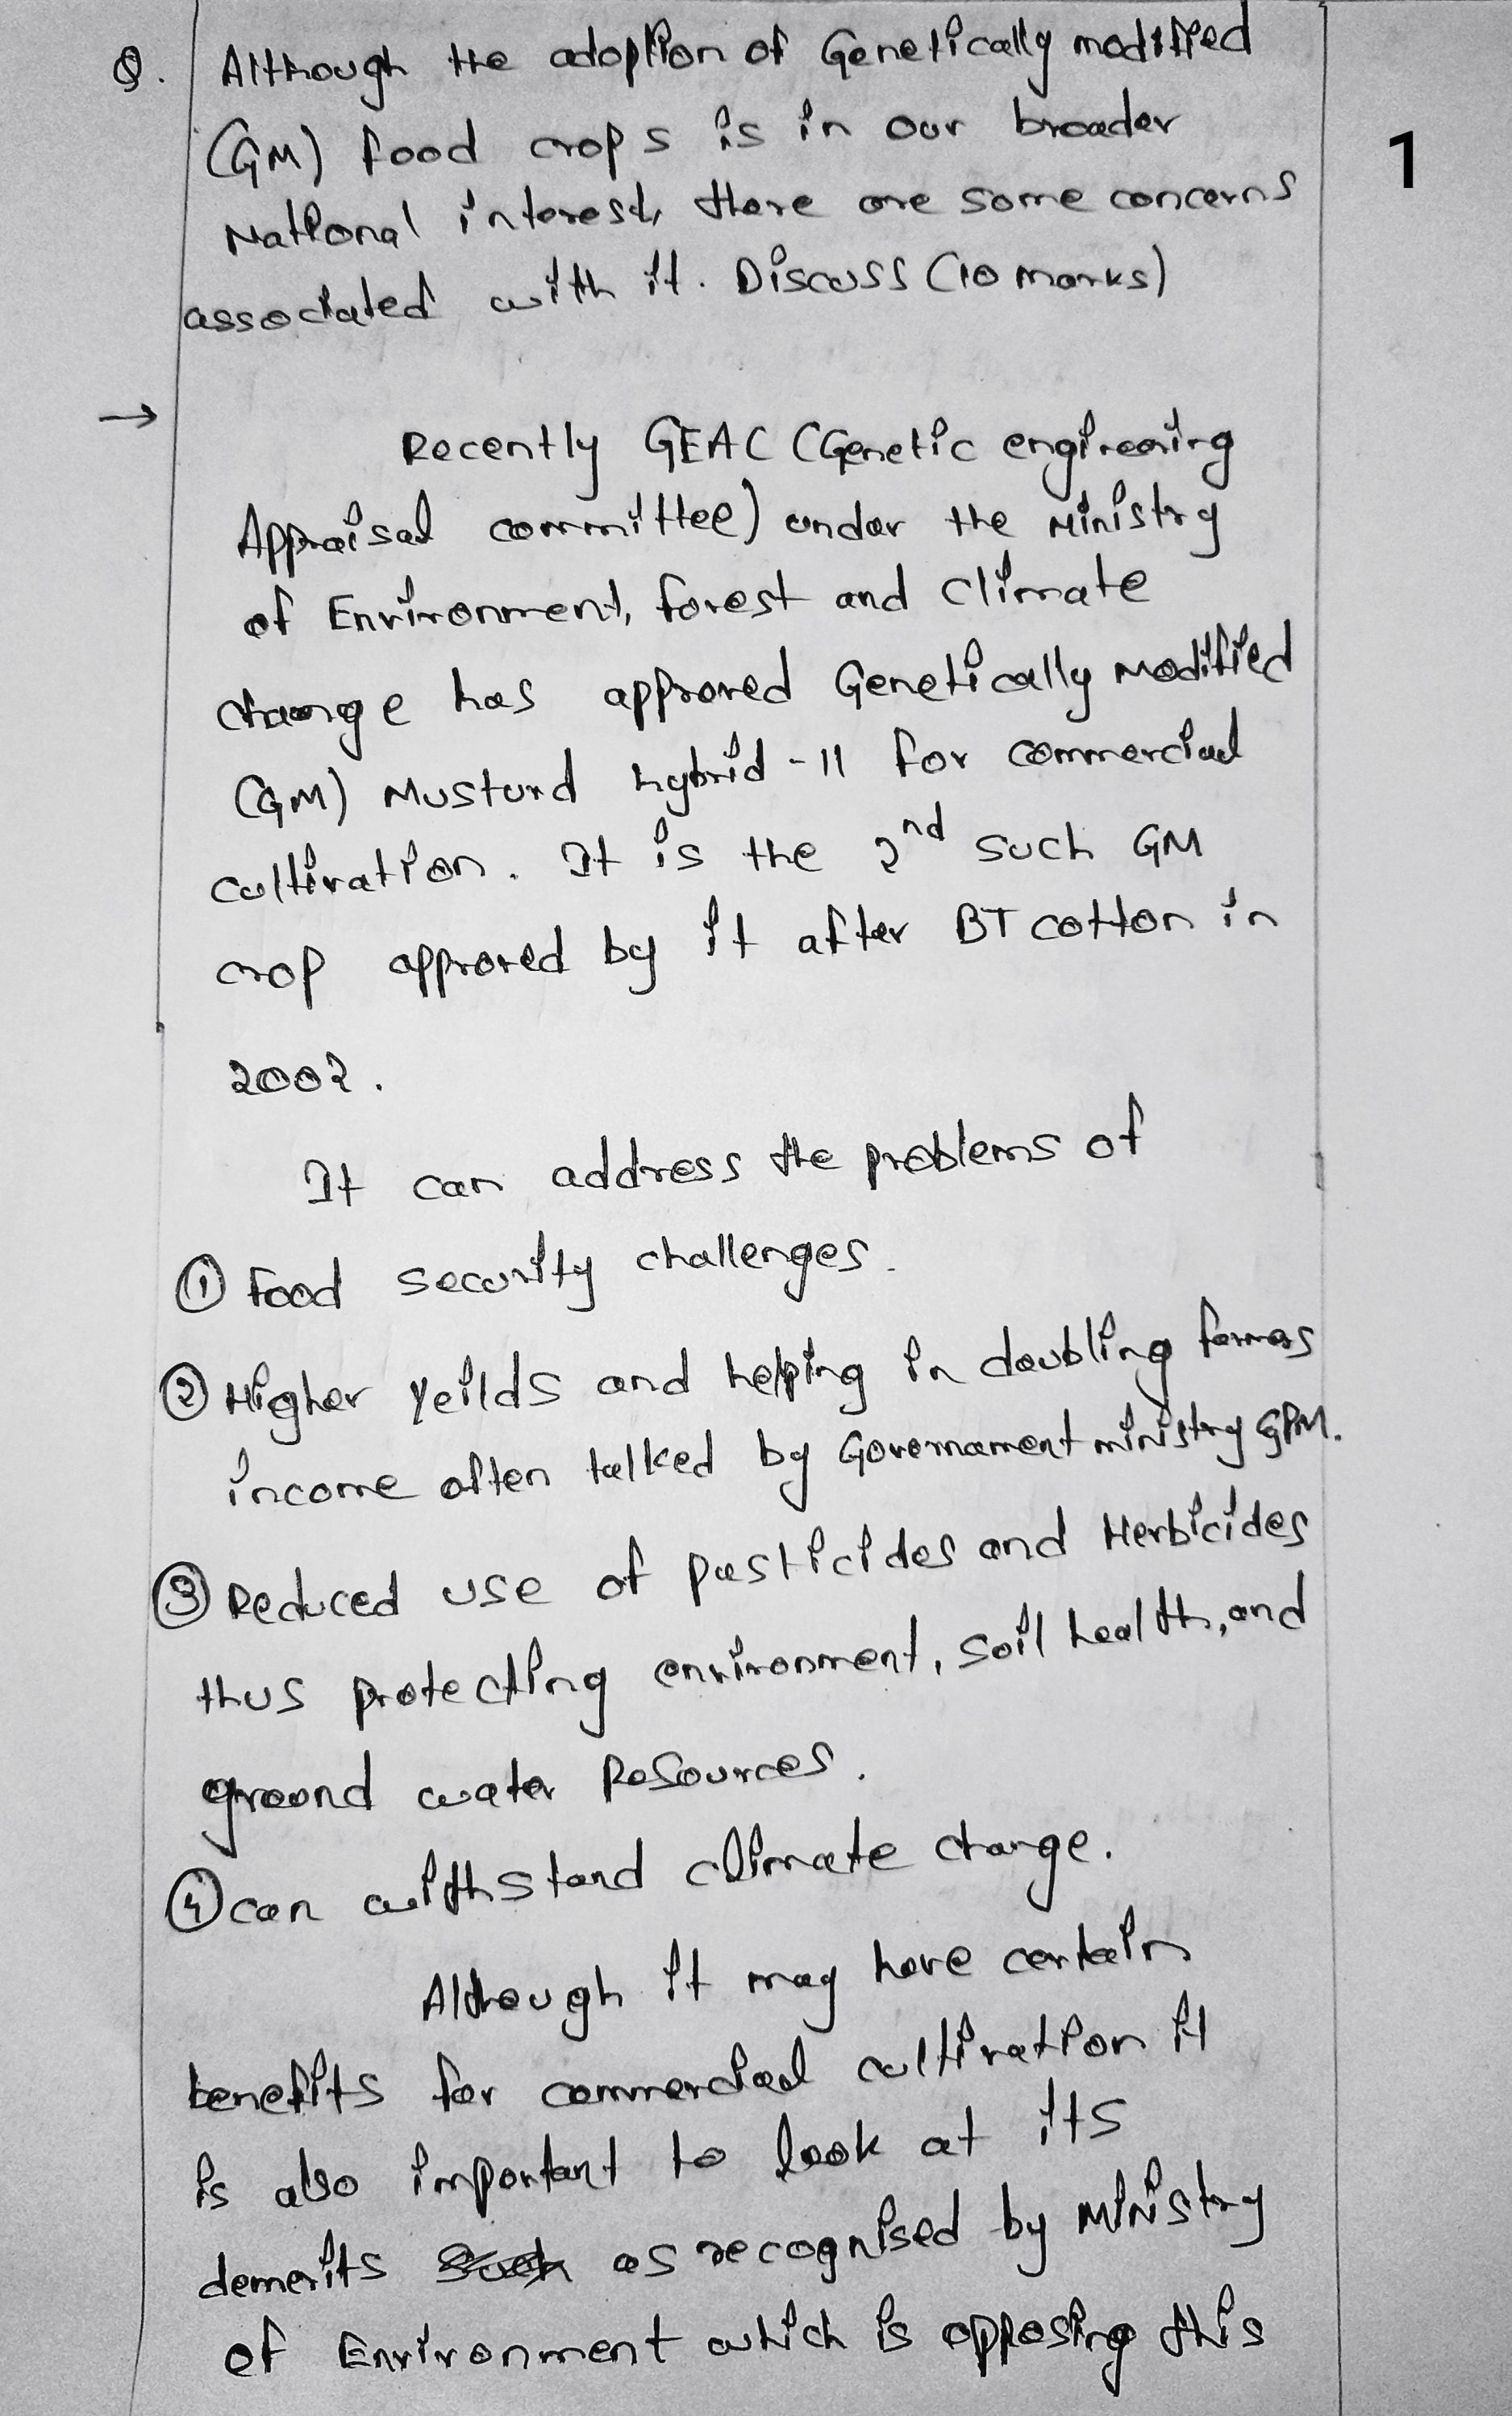 Q. Although the adoption of Genetically modified
(GM) food crops is in our broader
National interest, there are some concerns
associated with it. Discuss (10 marks)
1
→
Recently GEAC (Genetic engineering
Appraisal committee) under the Ministry
of Environment, forest and climate
change has approved Genetically Modified
(GM) Musturd hybrid-11 for commercial
cultivation. It is the 2nd such GM
crop approved by it after BT cotton in
2002.
It can address the problems of
① Food security challenges.
② Higher yeilds and helping in doubling farmers
income often talked by Governament ministry & PM.
③ Reduced use of pesticides and Herbicides
thus protecting environment, soil health, and
ground water Resources.
④ can withstand climate change.
Although it may have certain
benefits for commercial cultivation it
is also important to look at its
demerits as recognised by Ministry
of Environment which is opposing this